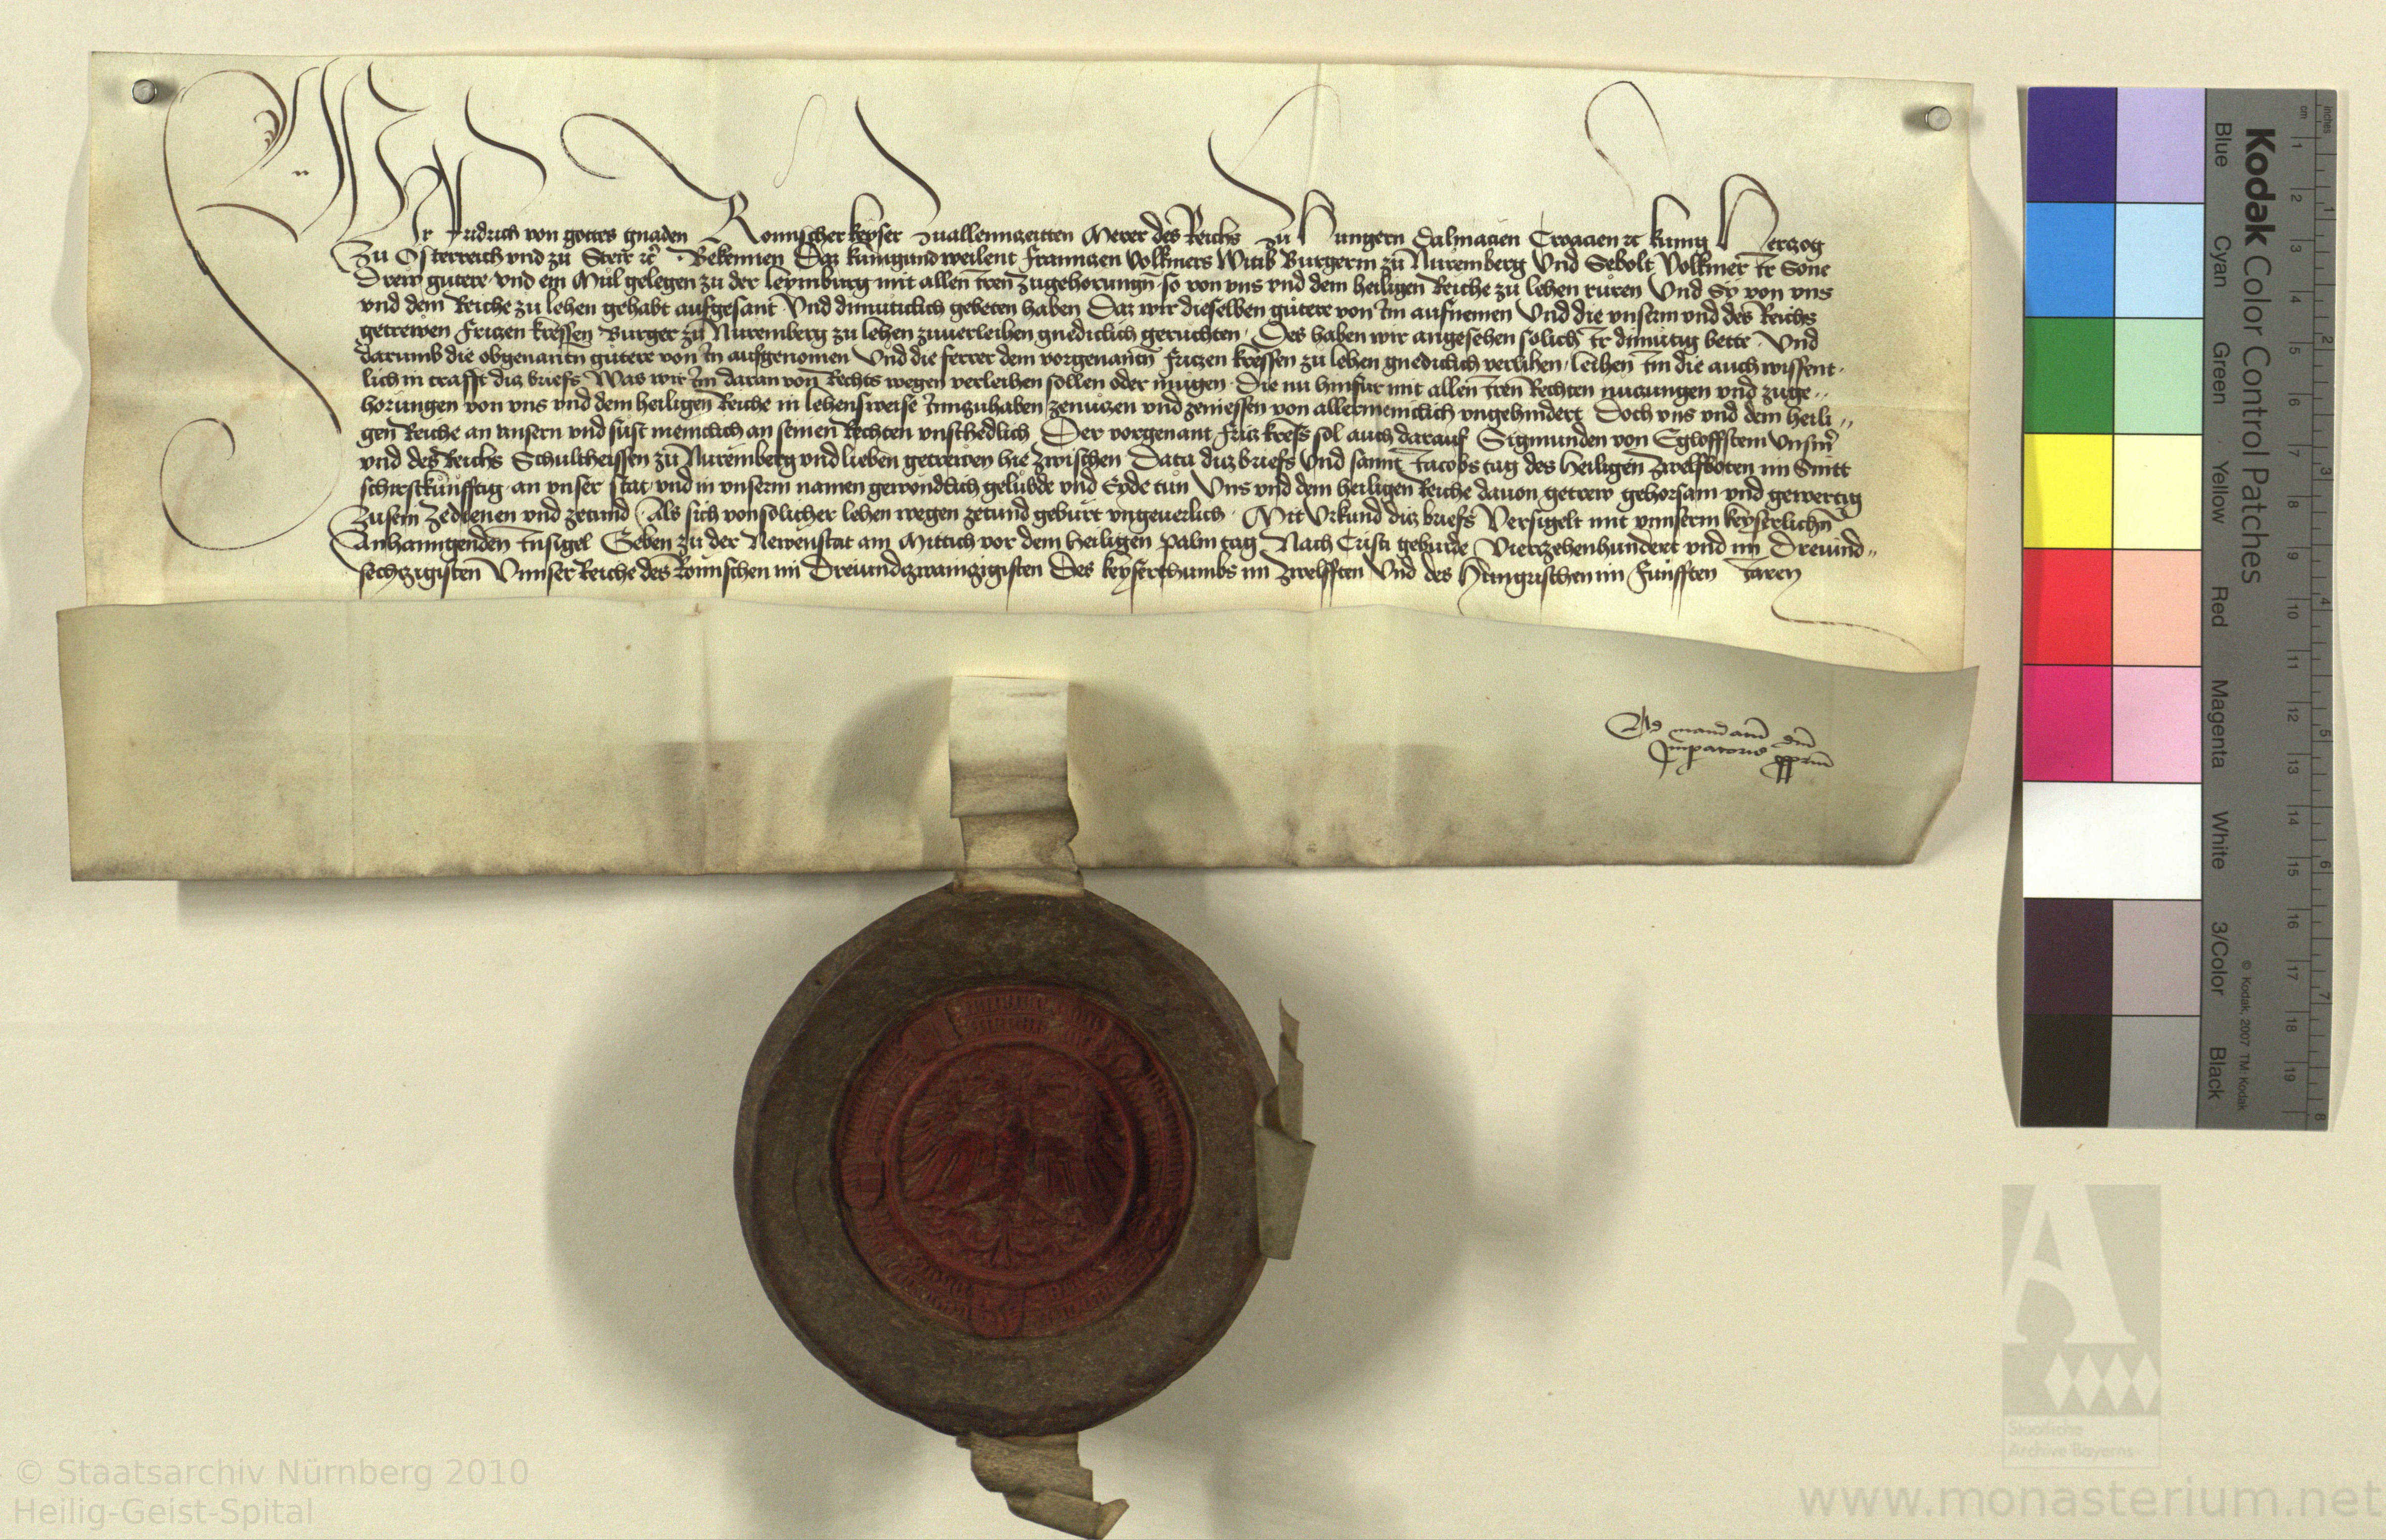 Wir Fridrich von gottes gnaden Romischer keyser zuallenntzeitten Merer des Reichs zu Hungern Dalmacien Croacien ꝛc kunig Hertzog
Zu Osterreich vnd zu Steir ꝛc Bekennen Daz kunigund weilent Franntzen Volkmers Witib Burgerin zu Nuremberg Vnd Sebolt Volkmer Ir Sone
Drew gutere vnd ein Mul gelegen zu der leymburg mit allen Iren zugehorungn so von vns vnd dem heiligen Reiche zu lehen ruren Vnd Sy von vns
vnd dem Reiche zu lehen gehabt aufgesant Vnd dimuticlich gebeten haben Daz wir dieselben gutere von Im aufnemen Vnd die vnserm vnd des Reichs
getrewen Fritzen kressen Burger zu Nuremberg zu lehen zuuerleihen gnediclich geruchten Des haben wir angesehen solich Ir dimutig bette Vnd
darumb die obgenantn gutere von In aufgenomen Vnd die ferrer dem vorgenantn Fritzen kressen zu lehen gnediclich verlihen leihen Im die auch wissent
lich in crafft ditz briefs Was wir Im daran von Rechts wegen verleihen sollen oder mugen Die nu hinfur mit allen Iren Rechten nutzungen vnd zuge
horungen von vns vnd dem heiligen Reiche in lehensweise Innzuhaben zenutzen vnd zeniessen von allermeniclich vngehindert Doch vns vnd dem heili
gen Reiche an vnsern vnd sust meniclich an seinen Rechten vnschedlich Der vorgenant Fritz kress sol auch darauf Sigmunden von Egloffstein Vnserm
vnd des Reichs Schultheissen zu Nuremberg vnd lieben getrewen hie zwischen Data ditz briefs Vnd sannt Jacobs tag des heiligen Zwelfboten im Snitt
schirstkunfftig an vnser stat vnd in vnserm namen gewondlich gelubde vnd Eyde tun Vns vnd dem heiligen Reiche dauon getrew gehorsam vnd gewertig
Zusein Zedienen vnd zetund Als sich von solicher lehen wegen zetund geburt vngeuerlich Mit Vrkund ditz briefs Versigelt mit vnnserm keyserlichn
Anhanngenden Innsigel Geben zu der Newenstat am Mittich vor dem heiligen Palm tag Nach Cristi geburde Viertzehenhundert vnd im Dreiund
sechtzigisten Vnnser Reiche des Romischen im Dreiundzwaintzigisten Des keyserthumbs im Zwelfften Vnd des Hungrischen im Funfften Jaren
Ad mandatū dni
Impatoris ppriū
Kodak Color Control Patches
Blue Cyan Green Yellow Red Magenta White 3/Color Black
© Kodak, 2007 TM: Kodak
cm 1 2 3 4 5 6 7 8 9 10 11 12 13 14 15 16 17 18 19
inches 1 2 3 4 5 6 7 8
Staatliche
Archive Bayerns
© Staatsarchiv Nürnberg 2010
Heilig-Geist-Spital
www.monasterium.net